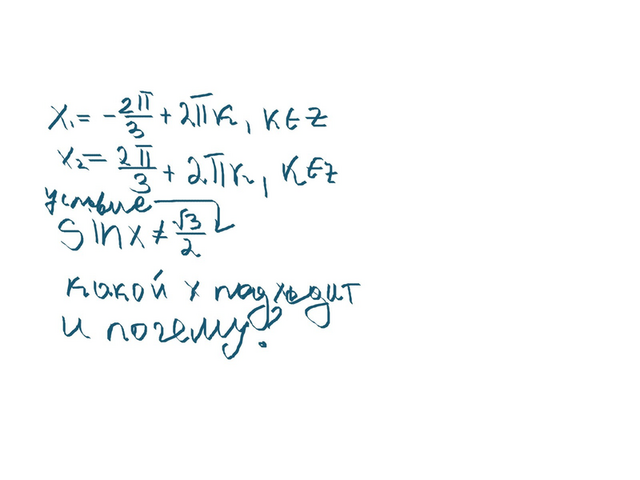 x₁ = -2π/3 + 2πk, k ∈ Z
x₂ = 2π/3 + 2πk, k ∈ Z
условие
sin x ≠ √3/2
какой x подходит
и почему?